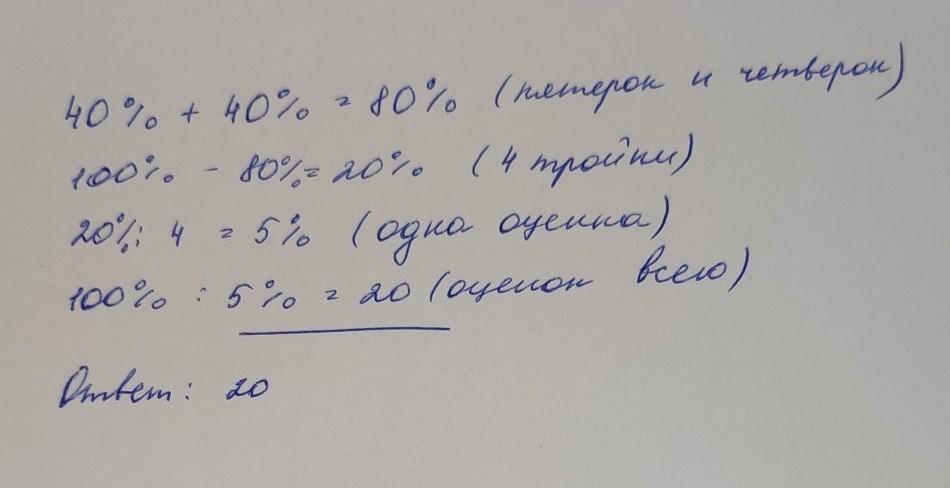 40% + 40% = 80% (пятерок и четверок)
100% - 80% = 20% (4 тройки)
20% : 4 = 5% (одна оценка)
100% : 5% = 20 (оценок всего)
Ответ: 20